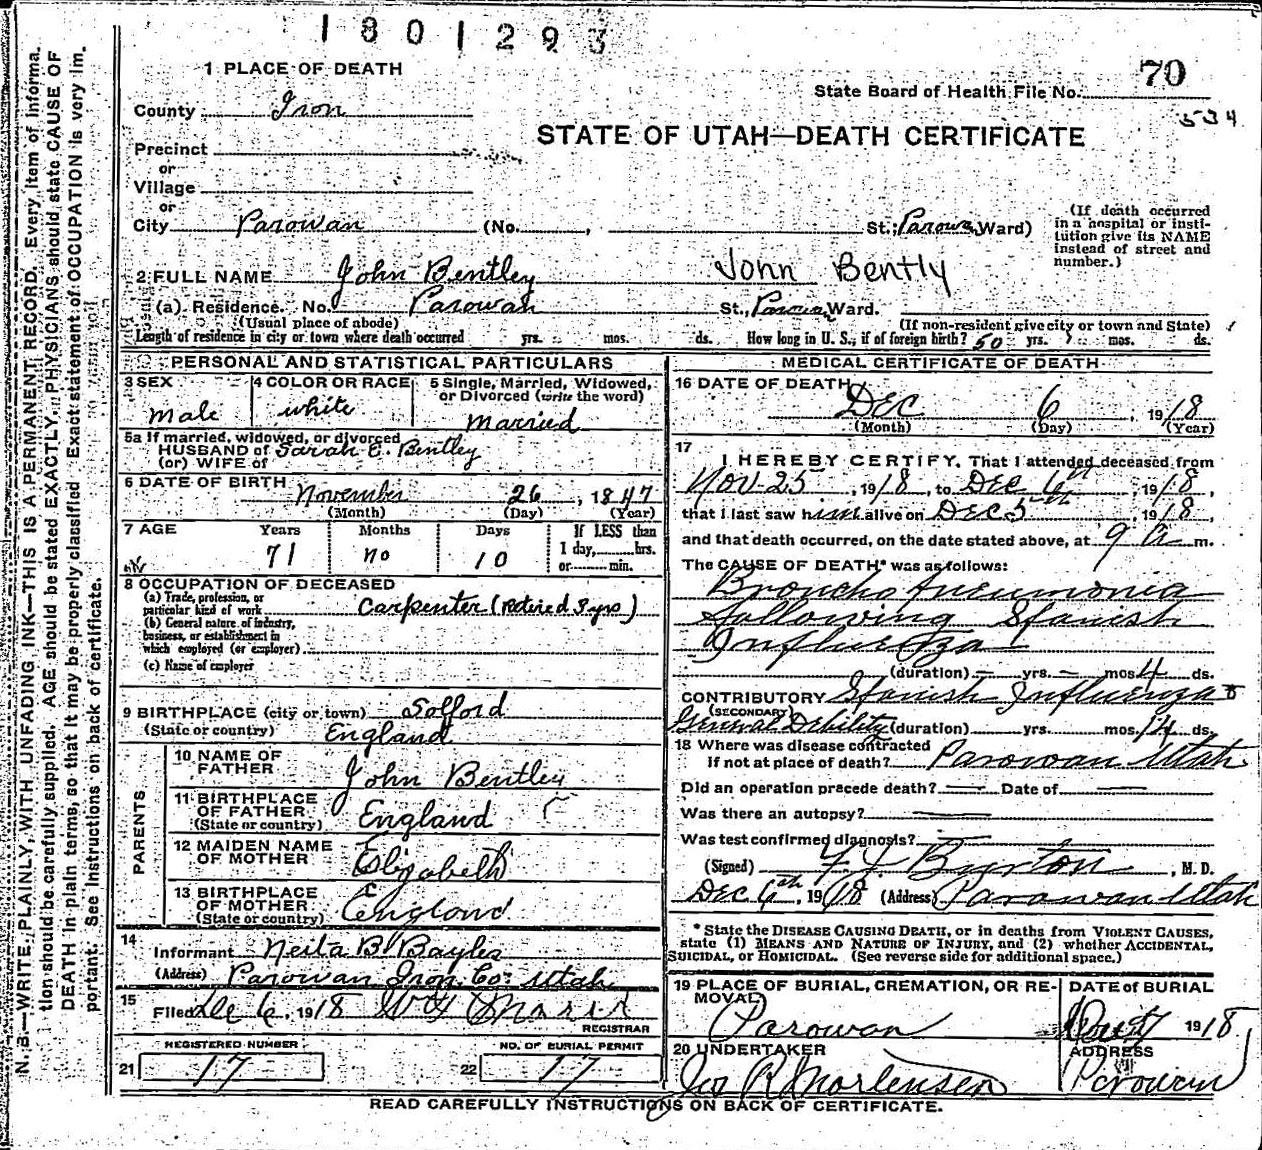 1801293
1 PLACE OF DEATH
70
State Board of Health File No.
534
County Iron
STATE OF UTAH—DEATH CERTIFICATE
Precinct
or
Village
or
City Parowan (No. , St.; Parowan Ward)
(If death occurred in a hospital or institution give its NAME instead of street and number.)
2 FULL NAME John Bentley John Bently
(a) Residence. No. Parowan St., Parowan Ward.
(Usual place of abode) (If non-resident give city or town and State)
Length of residence in city or town where death occurred yrs. mos. ds. How long in U. S., if of foreign birth? 50 yrs. ? mos. ds.
PERSONAL AND STATISTICAL PARTICULARS
3 SEX 4 COLOR OR RACE 5 Single, Married, Widowed, or Divorced (write the word)
male white married
5a If married, widowed, or divorced
HUSBAND of Sarah E. Bentley
(or) WIFE of
6 DATE OF BIRTH November 26, 1847
(Month) (Day) (Year)
7 AGE Years Months Days If LESS than
71 no 10 1 day, hrs.
or min.
8 OCCUPATION OF DECEASED
(a) Trade, profession, or
particular kind of work Carpenter (retired 3 yrs)
(b) General nature of industry,
business, or establishment in
which employed (or employer)
(c) Name of employer
9 BIRTHPLACE (city or town) Solford
(State or country) England
PARENTS
10 NAME OF
FATHER John Bentley
11 BIRTHPLACE
OF FATHER England
(State or country)
12 MAIDEN NAME
OF MOTHER Elizabeth
13 BIRTHPLACE
OF MOTHER England
(State or country)
14
Informant Neita B Bayles
(Address) Parowan Iron Co. Utah
15
Filed Dec 6, 1918
REGISTRAR
REGISTERED NUMBER NO. OF BURIAL PERMIT
21 17 22 17
MEDICAL CERTIFICATE OF DEATH
16 DATE OF DEATH
Dec 6, 1918
(Month) (Day) (Year)
17
I HEREBY CERTIFY, That I attended deceased from
Nov 25, 1918, to Dec 6th, 1918,
that I last saw him alive on Dec 5th, 1918,
and that death occurred, on the date stated above, at 9 a m.
The CAUSE OF DEATH* was as follows:
Broncho Pneumonia
following Spanish
Influenza
(duration) — yrs. — mos. 4 ds.
CONTRIBUTORY Spanish Influenza &
(SECONDARY)
General Debility (duration) yrs. mos. 14 ds.
18 Where was disease contracted
If not at place of death? Parowan Utah
Did an operation precede death? — Date of —
Was there an autopsy? —
Was test confirmed diagnosis? —
(Signed) F J Burton, M. D.
Dec 6th, 1918 (Address) Parowan Utah
* State the DISEASE CAUSING DEATH, or in deaths from VIOLENT CAUSES,
state (1) MEANS AND NATURE OF INJURY, and (2) whether ACCIDENTAL,
SUICIDAL, or HOMICIDAL. (See reverse side for additional space.)
19 PLACE OF BURIAL, CREMATION, OR RE-
MOVAL
Parowan
DATE of BURIAL
7 1918
20 UNDERTAKER
Geo R Mortensen
ADDRESS
Parowan
READ CAREFULLY INSTRUCTIONS ON BACK OF CERTIFICATE.
N. B.—WRITE PLAINLY, WITH UNFADING INK—THIS IS A PERMANENT RECORD. Every item of informa-
tion should be carefully supplied. AGE should be stated EXACTLY. PHYSICIANS should state CAUSE OF
DEATH in plain terms, so that it may be properly classified. Exact statement of OCCUPATION is very im-
portant. See instructions on back of certificate.